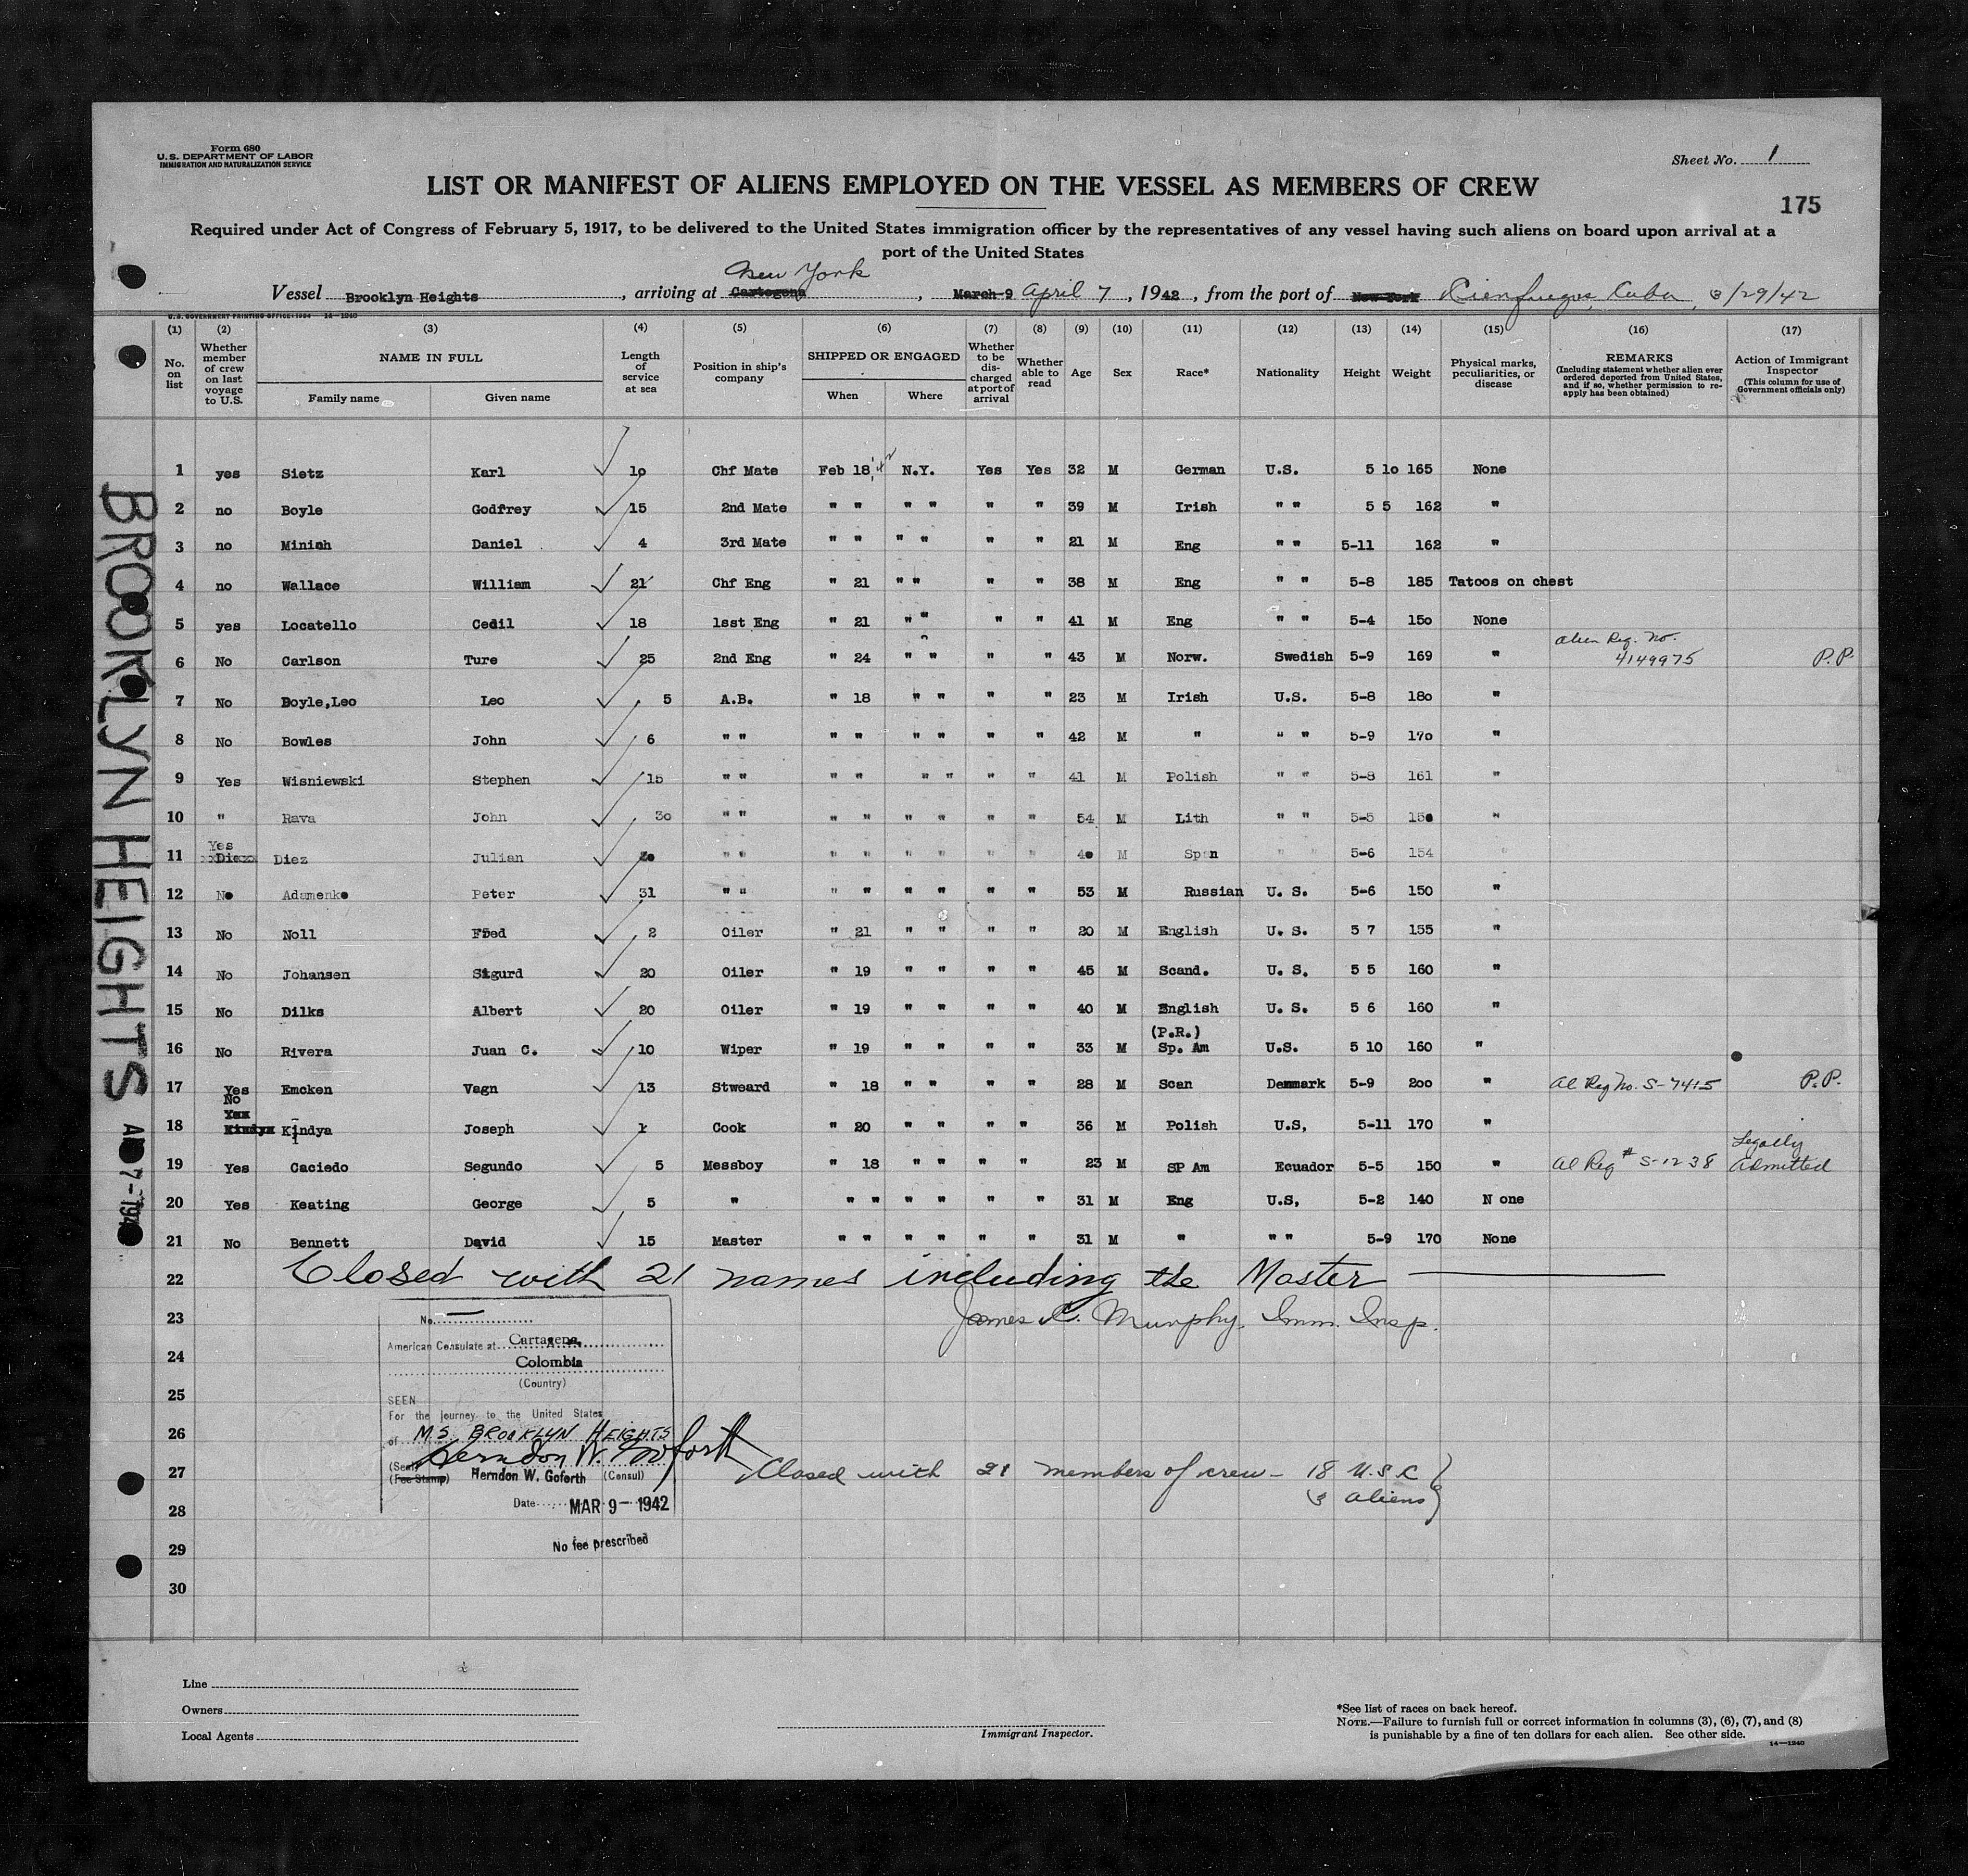 Form 680
U.S. DEPARTMENT OF LABOR
IMMIGRATION AND NATURALIZATION SERVICE
Sheet No. 1
LIST OR MANIFEST OF ALIENS EMPLOYED ON THE VESSEL AS MEMBERS OF CREW
175
Required under Act of Congress of February 5, 1917, to be delivered to the United States immigration officer by the representatives of any vessel having such aliens on board upon arrival at a
port of the United States
New York
Vessel Brooklyn Heights, arriving at Cartogena, March 9 April 7, 1942, from the port of New York Cienfuegos, Cuba, 3/29/42
U.S. GOVERNMENT PRINTING OFFICE: 1934 14—1240
(1) (2) (3) (4) (5) (6) (7) (8) (9) (10) (11) (12) (13) (14) (15) (16) (17)
No. on list
Whether member of crew on last voyage to U.S.
NAME IN FULL
Family name Given name
Length of service at sea
Position in ship's company
SHIPPED OR ENGAGED
When Where
Whether to be discharged at port of arrival
Whether able to read
Age Sex Race* Nationality Height Weight
Physical marks, peculiarities, or disease
REMARKS
(Including statement whether alien ever ordered deported from United States, and if so, whether permission to reapply has been obtained)
Action of Immigrant Inspector
(This column for use of Government officials only)
1 yes Sietz Karl 10 Chf Mate Feb 18, 42 N.Y. Yes Yes 32 M German U.S. 5 10 165 None
2 no Boyle Godfrey 15 2nd Mate " " " " " " 39 M Irish " " 5 5 162 "
3 no Minich Daniel 4 3rd Mate " " " " " " 21 M Eng " " 5-11 162 "
4 no Wallace William 21 Chf Eng " 21 " " " " 38 M Eng " " 5-8 185 Tatoos on chest
5 yes Locatello Cedil 18 1sst Eng " 21 " " " " 41 M Eng " " 5-4 150 None
6 No Carlson Ture 25 2nd Eng " 24 " " " " 43 M Norw. Swedish 5-9 169 " Alien Reg. No. 4149975 P.P.
7 No Boyle,Leo Leo 5 A.B. " 18 " " " " 23 M Irish U.S. 5-8 180 "
8 No Bowles John 6 " " " " " " " " 42 M " " " 5-9 170 "
9 Yes Wisniewski Stephen 15 " " " " " " " " 41 M Polish " " 5-8 161 "
10 " Rava John 30 " " " " " " " " 54 M Lith " " 5-5 150 "
Yes
11 xxDiexx Diez Julian 20 " " " " " " " " 40 M Span " " 5-6 154 "
12 No Adamenko Peter 31 " " " " " " " " 53 M Russian U. S. 5-6 150 "
13 No Noll Fred 2 Oiler " 21 " " " " 20 M English U. S. 5 7 155 "
14 No Johansen Sigurd 20 Oiler " 19 " " " " 45 M Scand. U. S. 5 5 160 "
15 No Dilks Albert 20 Oiler " 19 " " " " 40 M English U. S. 5 6 160 "
(P.R.)
16 No Rivera Juan C. 10 Wiper " 19 " " " " 33 M Sp. Am U.S. 5 10 160 "
17 Yes Emcken Vagn 13 Stweard " 18 " " " " 28 M Scan Denmark 5-9 200 " Al Reg No. S-7415 P.P.
No
Yes
18 Kindya Kindya Joseph 1 Cook " 20 " " " " 36 M Polish U.S, 5-11 170 "
19 Yes Caciedo Segundo 5 Messboy " 18 " " " " 23 M SP Am Ecuador 5-5 150 " Al Reg # S-1238 Legally Admitted
20 Yes Keating George 5 " " " " " " " 31 M Eng U.S, 5-2 140 N one
21 No Bennett David 15 Master " " " " " " 31 M " " " 5-9 170 None
22 Closed with 21 names including the Master
23 James C. Murphy. Imm. Insp.
24
25
26
27 Closed with 21 members of crew - 18 U.S.C
28 3 aliens
29
30
No.
American Consulate at Cartagena,
Colombia
(Country)
SEEN
For the journey to the United States
of M.S. BROOKLYN HEIGHTS
Herndon W. Goforth
(Seal)
(Fee Stamp) Herndon W. Goforth (Consul)
Date MAR 9 - 1942
No fee prescribed
BROOKLYN HEIGHTS
Line
Owners
Local Agents
Immigrant Inspector.
*See list of races on back hereof.
NOTE.—Failure to furnish full or correct information in columns (3), (6), (7), and (8)
is punishable by a fine of ten dollars for each alien. See other side.
14—1240